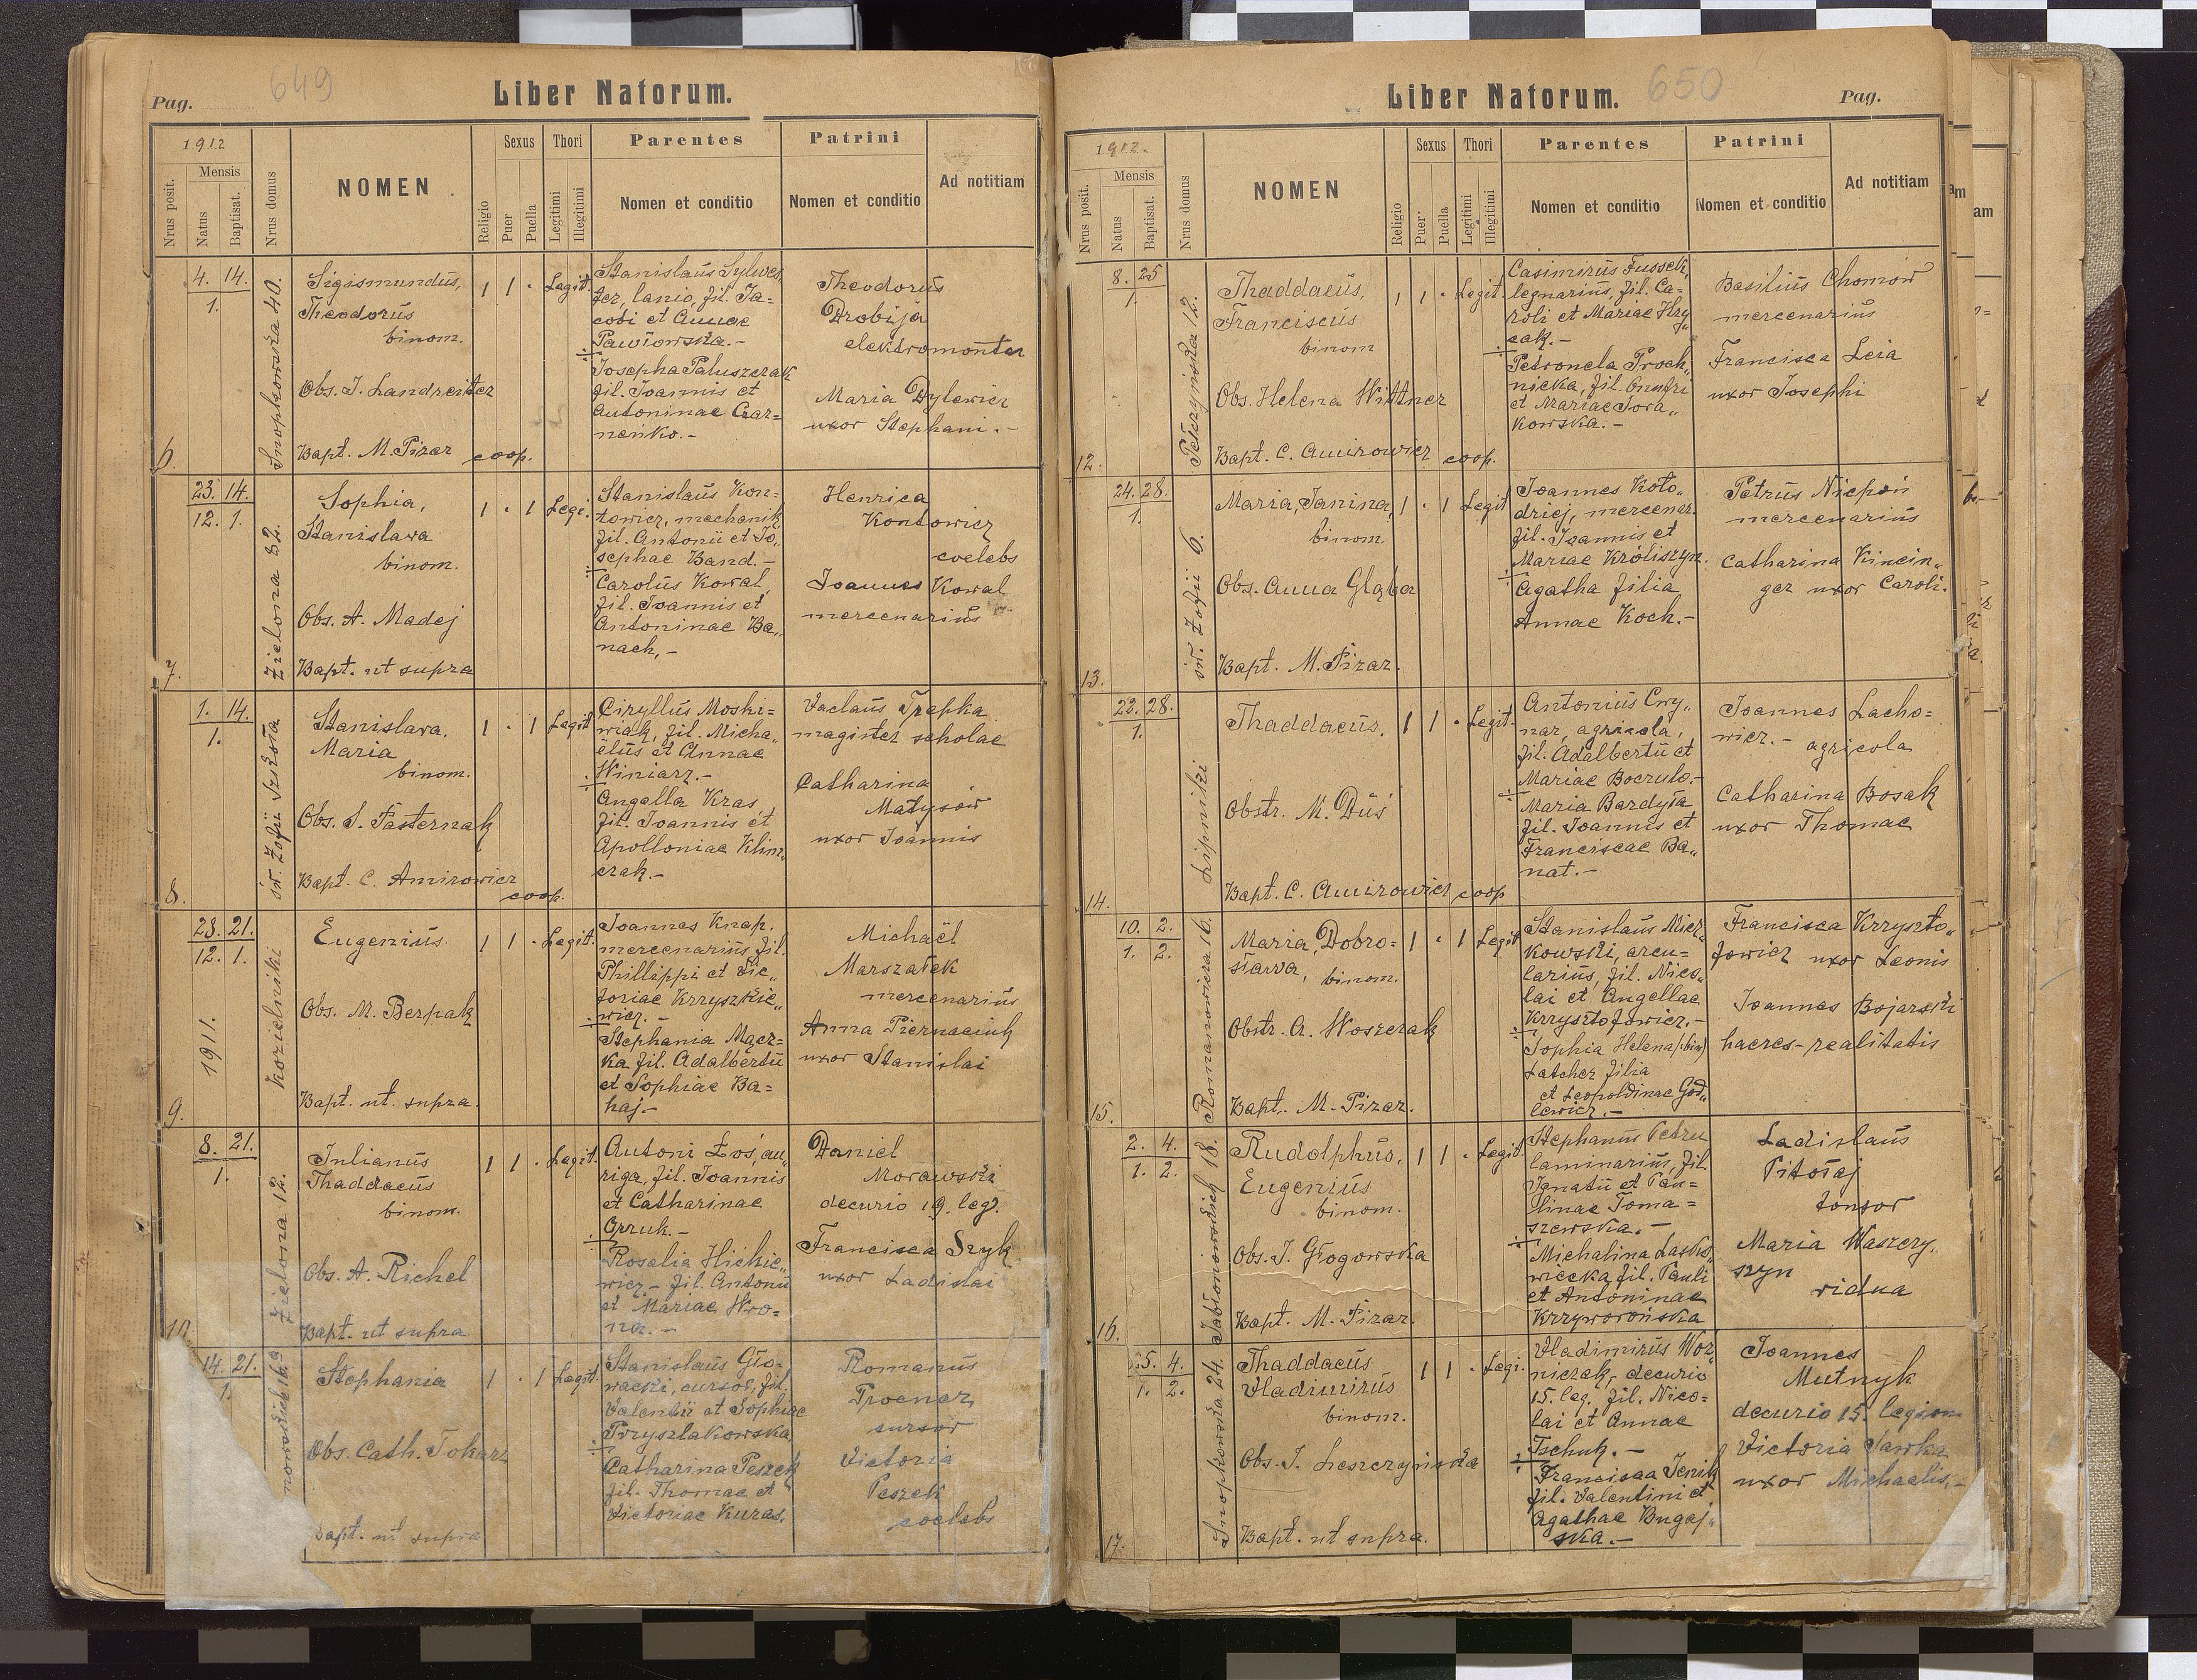 649
Pag.
Liber Natorum.
1912
Mensis
Nrus posit.
Natus
Baptisat.
Nrus domus
NOMEN
Religio
Sexus
Puer
Puella
Thori
Legitimi
Illegitimi
Parentes
Nomen et conditio
Patrini
Nomen et conditio
Ad notitiam
6.
4. 14.
1.
Snopkowska 40.
Sigismundus,
Theodorus
binom.
Obs. J. Landreiter
Bapt. M. Pizar coop.
1 1 · Legit.
Stanislaus Sylwes„
ter, lanio, fil. Ja=
cobi et Annae
Pawłowska.-
Josepha Paluszczak
fil. Joannis et
Antoninae Czar=
nenko.-
Theodorus
Drobija
elektromonter
Maria Dylewicz
uxor Stephani.-
7.
23. 14.
12. 1.
Zielona 82.
Sophia,
Stanislawa
binom.
Obs. A. Madej
Bapt. ut supra
1 · 1 Legi.
Stanislaus Kon=
towicz, mechanik
fil. Antonii et Jo„
sephae Band.-
Carolus Kowal,
fil. Joannis et
Antoninae Ba„
nach,-
Henrica
Kontowicz
coelebs
Joannes Kowal
mercenarius
8.
1. 14.
1.
św. Zofii Szkoła
Stanislava,
Maria
binom.
Obs. S. Pasternak
Bapt. C. Amirowicz
coop.
1 · 1 Legit
Ciryllus Moski=
wiak, fil. Micha„
ëlus et Annae
Winiarz.-
Angella Kras,
fil. Joannis et
Apolloniae Klim„
czak.-
Vaclaus Trepka
magister scholae
Catharina
Matysów
uxor Joannis
9.
28. 21.
12. 1.
1911.
Kozielniki
Eugenius.
Obs. M. Berpak
Bapt. ut. supra.
1 1 · Legit.
Joannes Knap.
mercenarius, fil.
Phillippi et Vic„
toriae Krzyszkie„
wicz.-
Stephania Mącz=
ka fil. Adalbertii
et Sophiae Ba=
haj.-
Michaël
Marszałek
mercenarius
Anna Piernaciuk
uxor Stanislai
10
8. 21.
1.
Zielona 12.
Julianus
Thaddaeus
binom.
Obs. A. Richel
Bapt. ut supra
1 1 · Legit.
Antoni Łoś, au„
riga, fil. Joannis
et Catharinae
Gpruk.-
Rosalia Hickie„
wicz- fil. Antonii
et Mariae Wro=
na.-
Daniel
Morawski
decurio 19. leg.
Francisca Szyk
uxor Ladislai
14. 21.
1.
Stephania
Obs. Cath. Tokarz
Bapt. ut supra
1 · 1 Legit.
Stanislaus Gło„
wacki, cursor, fil.
Valentii et Sophiae
Przyszlakowska
Catharina Peszek
fil. Thomae et
Victoriae Kuras.
Romanus
Procner
cursor
Victoria
Peszek
coelebs
Liber Natorum.
650
Pag.
1912.
Mensis
Nrus posit.
Natus
Baptisat.
Nrus domus
NOMEN
Religio
Sexus
Puer
Puella
Thori
Legitimi
Illegitimi
Parentes
Nomen et conditio
Patrini
Nomen et conditio
Ad notitiam
12.
8. 25
1.
Pełczyńska 12.
Thaddaeus,
Franciscus
binom
Obs. Helena Wittner
Bapt. C. Amirowicz coop.
1 1 · Legit.
Casimirus Fussek,
legnarius, fil. Ca=
roli et Mariae Hry„
cak.-
Petronela Proch„
nicka, fil. Onufri
et Mariae Tora„
kowska.-
Basilius Chomów
mercenarius
Francisca Leia
uxor Josephi
13.
24. 28.
1.
św. Zofii 6.
Maria, Janina,
binom.
Obs. Anna Głąba
Bapt. M. Pizar.
1 · 1 Legit
Joannes Koło„
dziej, mercenar.
fil. Joannis et
Mariae Króliszyn.
Agatha filia
Annae Koch.-
Petrus Niepoń
mercenarius
Catharina Kincin„
ger uxor Caroli.
14.
22. 28.
1.
Lipniki
Thaddaeus.
Obstr. M. Duś
Bapt. C. Amirowicz coop
1 1 · Legit.
Antonius Cwy„
nar, agricola,
fil. Adalbertii et
Mariae Boczulo.-
Maria Bardyła
fil. Joannis et
Franciscae Ba„
nat.-
Joannes Lacho=
wicz.- agricola
Catharina Bosak
uxor Thomae
15.
10. 2.
1. 2.
Romanowicza 16.
Maria, Dobro=
sława, binom.
Obstr. A. Woszczak
Bapt. M. Pizar.
1 · 1 Legit
Stanislaus Micz„
kowski, arcu=
larius, fil. Nico„
lai et Angellae
Krzysztofowicz.-
Sophia Helena (bin)
Latcher filia
et Leopoldinae God„
lewicz.-
Francisca Krzyszto„
fowicz uxor Leonis
Joannes Bojarski
haeres-realitatis
16.
2. 4.
1. 2.
Jabłonowskich 18.
Rudolphus,
Eugenius
binom.
Obs. J. Głogowska
Bapt. M. Pizar.
1 1 · Legit.
Stephanus Petru
laminarius, fil.
Ignatii et Pau=
linae Toma=
szewska.-
Michalina Lasko„
wiecka fil. Pauli
et Antoninae
Krzyworońska
Ladislaus
Pitołaj
tonsor
Maria Waszczy„
szyn
vidua
17.
5. 4.
1. 2.
Snopkowska 24.
Thaddaeus
Vladimirus
binom.
Obs. J. Leszczyńska
Bapt. ut supra.
1 1 · Legi.
Vladimirus Woź„
niczak, decurio
15. leg. fil. Nico=
lai et Annae
Tschuk.-
Francisca Jenik
fil. Valentini et
Agathae Bugaj„
ska.-
Joannes
Mutnyk
decurio 15. legion
Victoria Sawka
uxor Michaelis.-